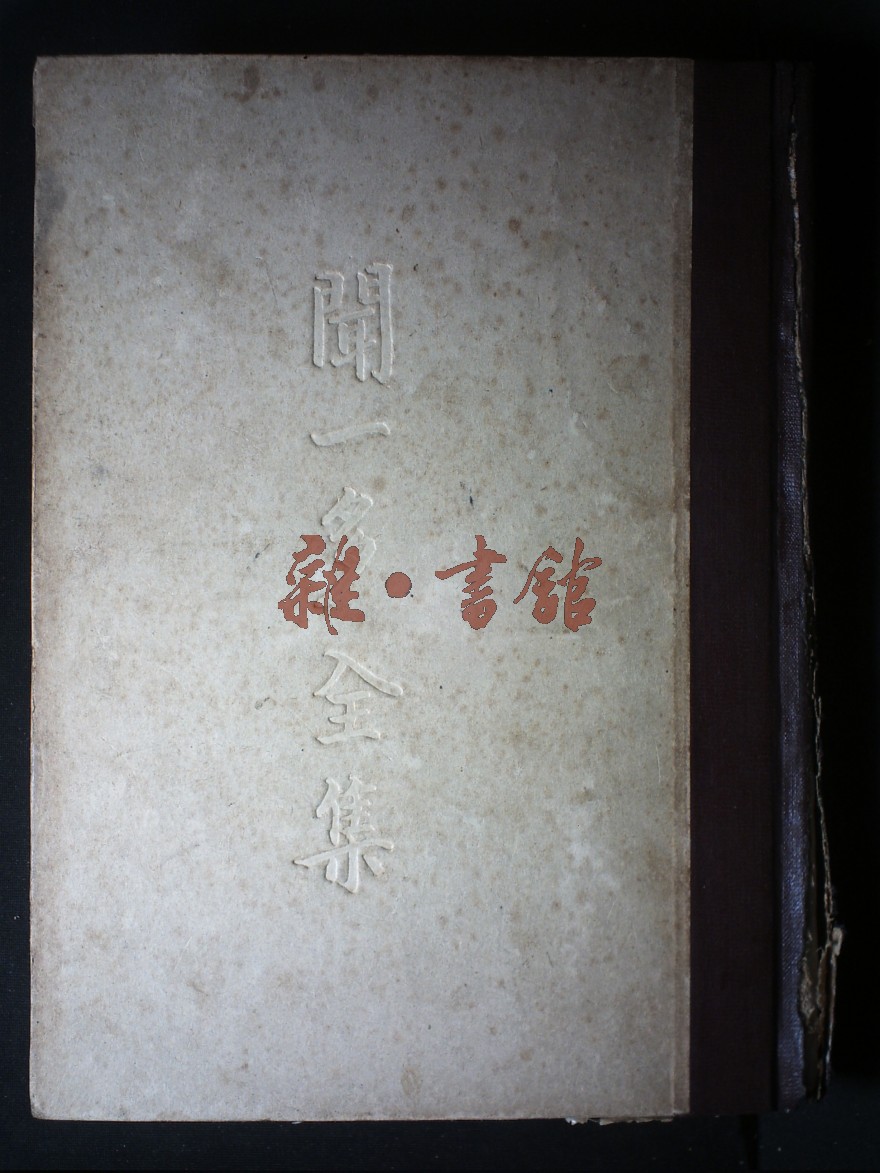 聞一多全集
雜·書館